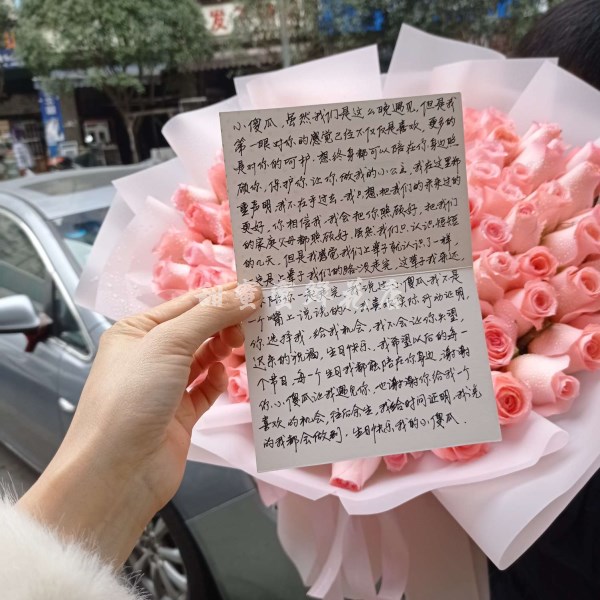 小傻瓜，虽然我们是这么晚遇见，但是我
第一眼对你的感觉已经不仅仅是喜欢，更多的
是对你的呵护，想终身都可以陪在你身边照
顾你，保护你，让你做我的小公主，我在这里郑
重声明，我不在乎过去，我只想把我们的未来过的
更好，你相信我，我会把你照顾好，把我们
的家庭父母都照顾好，虽然我们只认识短短
的几天，但是我感觉我们上辈子就认识了一样，
上辈子我们的路没走完，这辈子我来
陪你一起走完，小傻瓜，我不是
一个嘴上说说的人，行动证明，
你选择我，给我机会，我不会让你失望，
迟来的祝福，生日快乐，我希望以后的每一
个节日，每一个生日我都能陪在你身边，谢谢
你，小傻瓜让我遇见你，也谢谢你给我一个
喜欢的机会，往后余生，我给时间证明，我说
的我都会做到，生日快乐，我的小傻瓜．
发